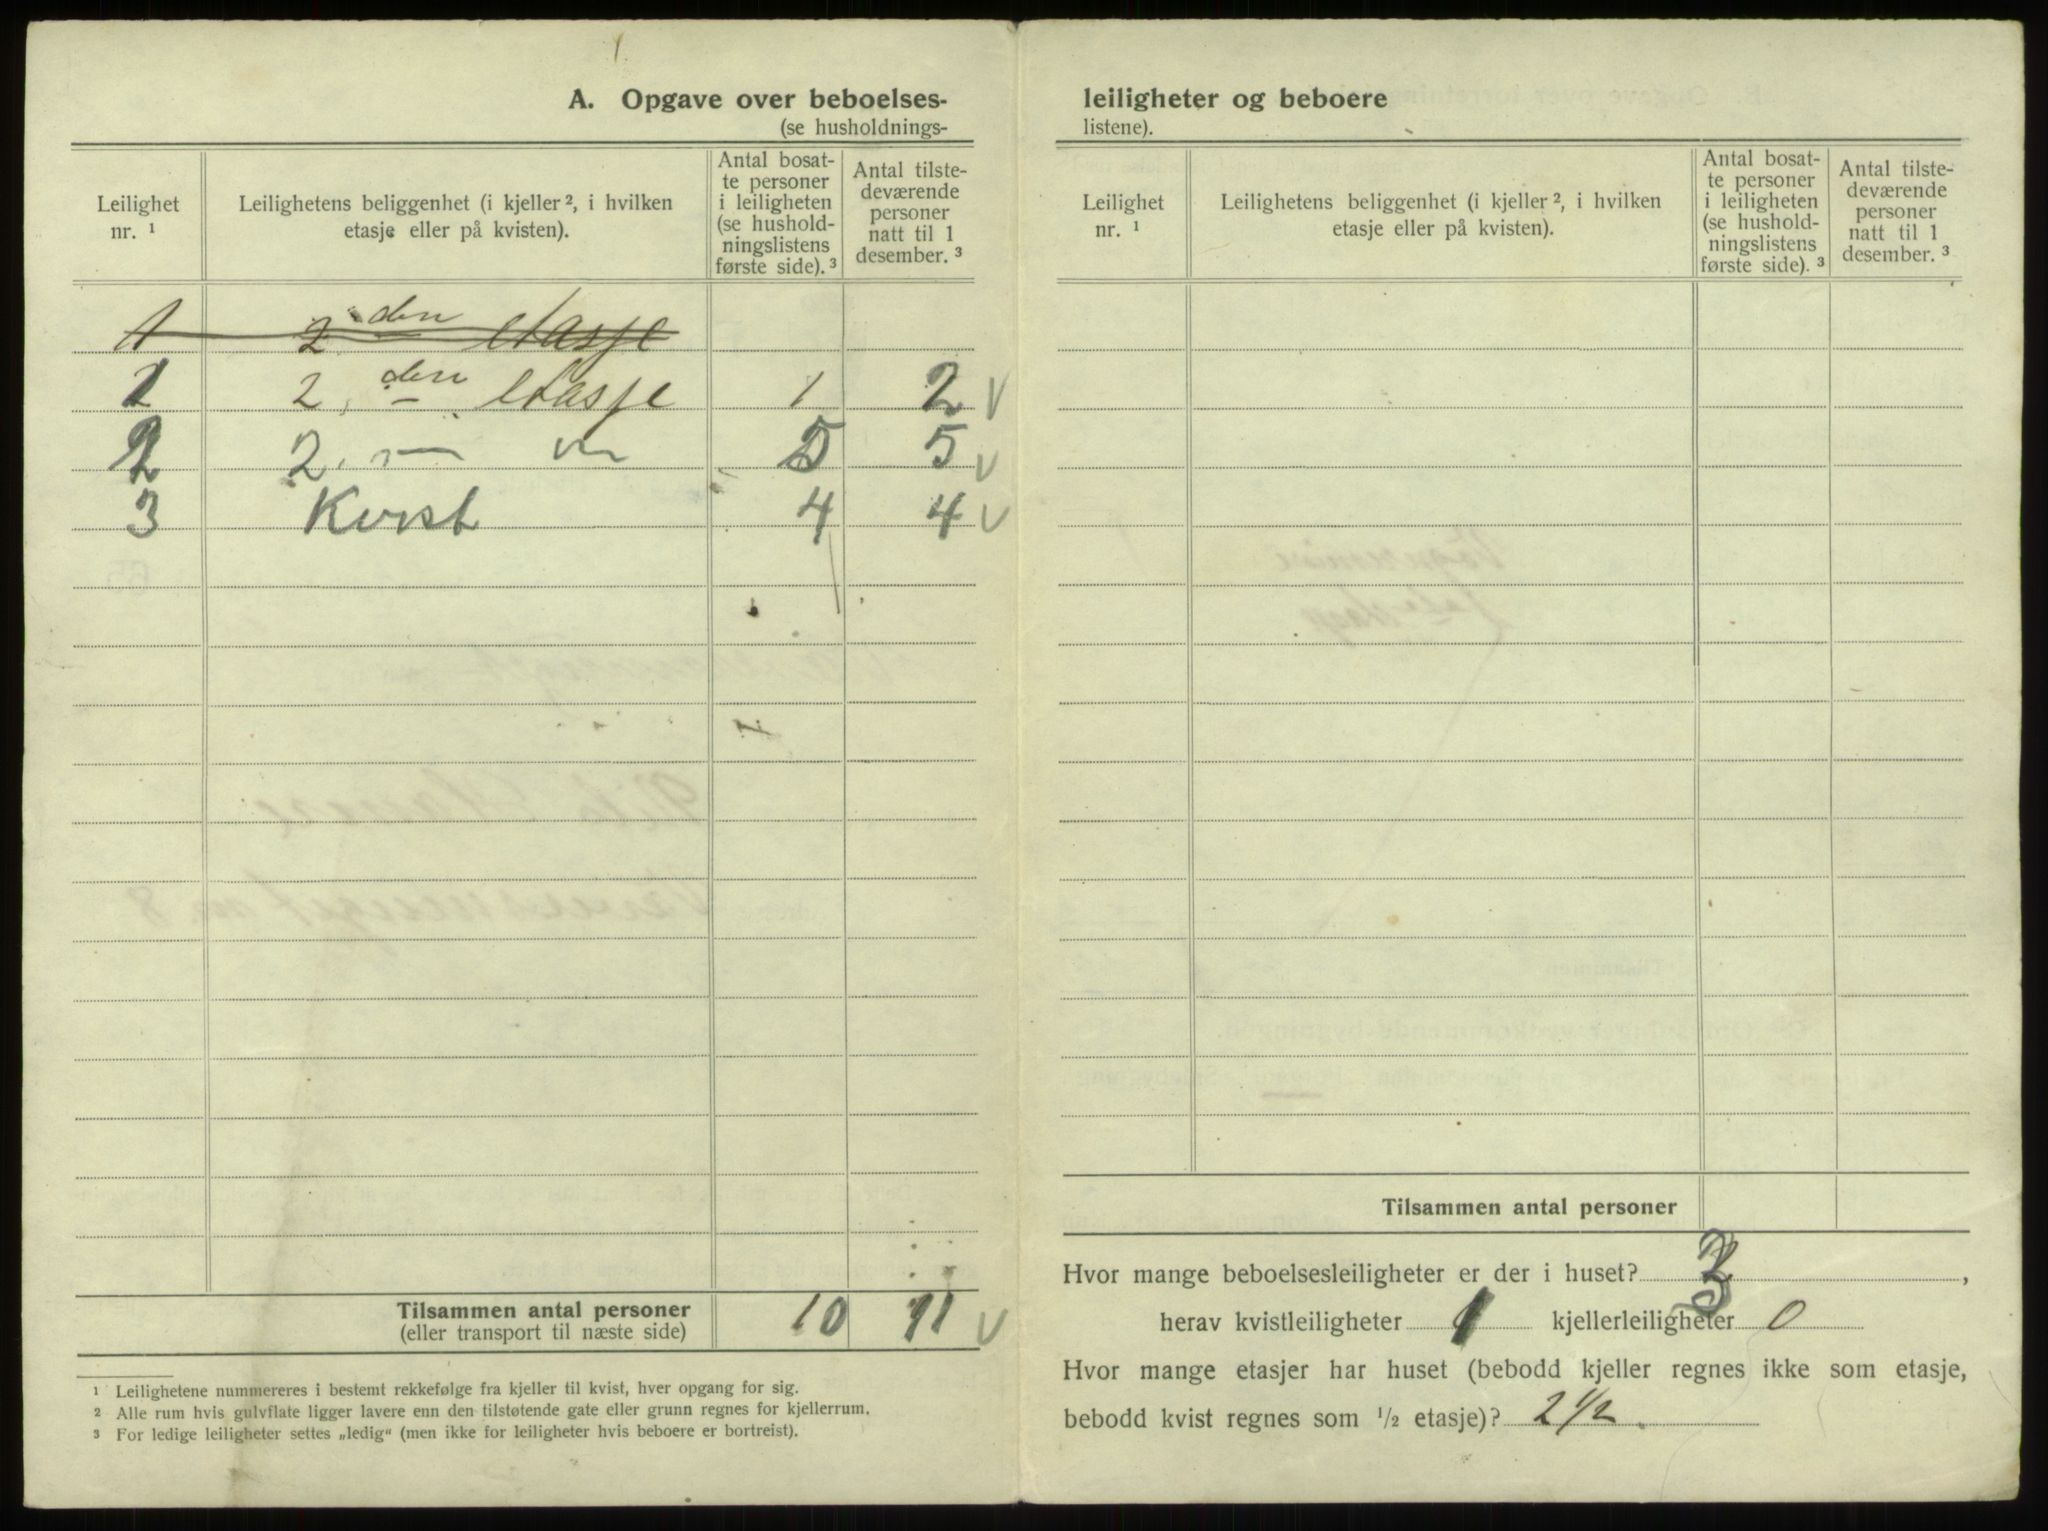 A. Opgave over beboelses-
(se husholdnings-
Leilighet
nr. ¹
Leilighetens beliggenhet (i kjeller ², i hvilken
etasje eller på kvisten).
Antal bosat-
te personer
i leiligheten
(se hushold-
ningslistens
første side). ³
Antal tilste-
deværende
personer
natt til 1
desember. ³
1 2. den etasje
1 2. den etasje 1 2 v
2 2. — " — 5 5 v
3 Kvist 4 4 v
Tilsammen antal personer
(eller transport til næste side) 10 11 v
¹ Leilighetene nummereres i bestemt rekkefølge fra kjeller til kvist, hver opgang for sig.
² Alle rum hvis gulvflate ligger lavere enn den tilstøtende gate eller grunn regnes for kjellerrum.
³ For ledige leiligheter settes „ledig“ (men ikke for leiligheter hvis beboere er bortreist).
leiligheter og beboere
listene).
Leilighet
nr. ¹
Leilighetens beliggenhet (i kjeller ², i hvilken
etasje eller på kvisten).
Antal bosat-
te personer
i leiligheten
(se hushold-
ningslistens
første side). ³
Antal tilste-
deværende
personer
natt til 1
desember. ³
Tilsammen antal personer
Hvor mange beboelsesleiligheter er der i huset? 3,
herav kvistleiligheter 1 kjellerleiligheter 0
Hvor mange etasjer har huset (bebodd kjeller regnes ikke som etasje,
bebodd kvist regnes som ½ etasje)? 2 ½.